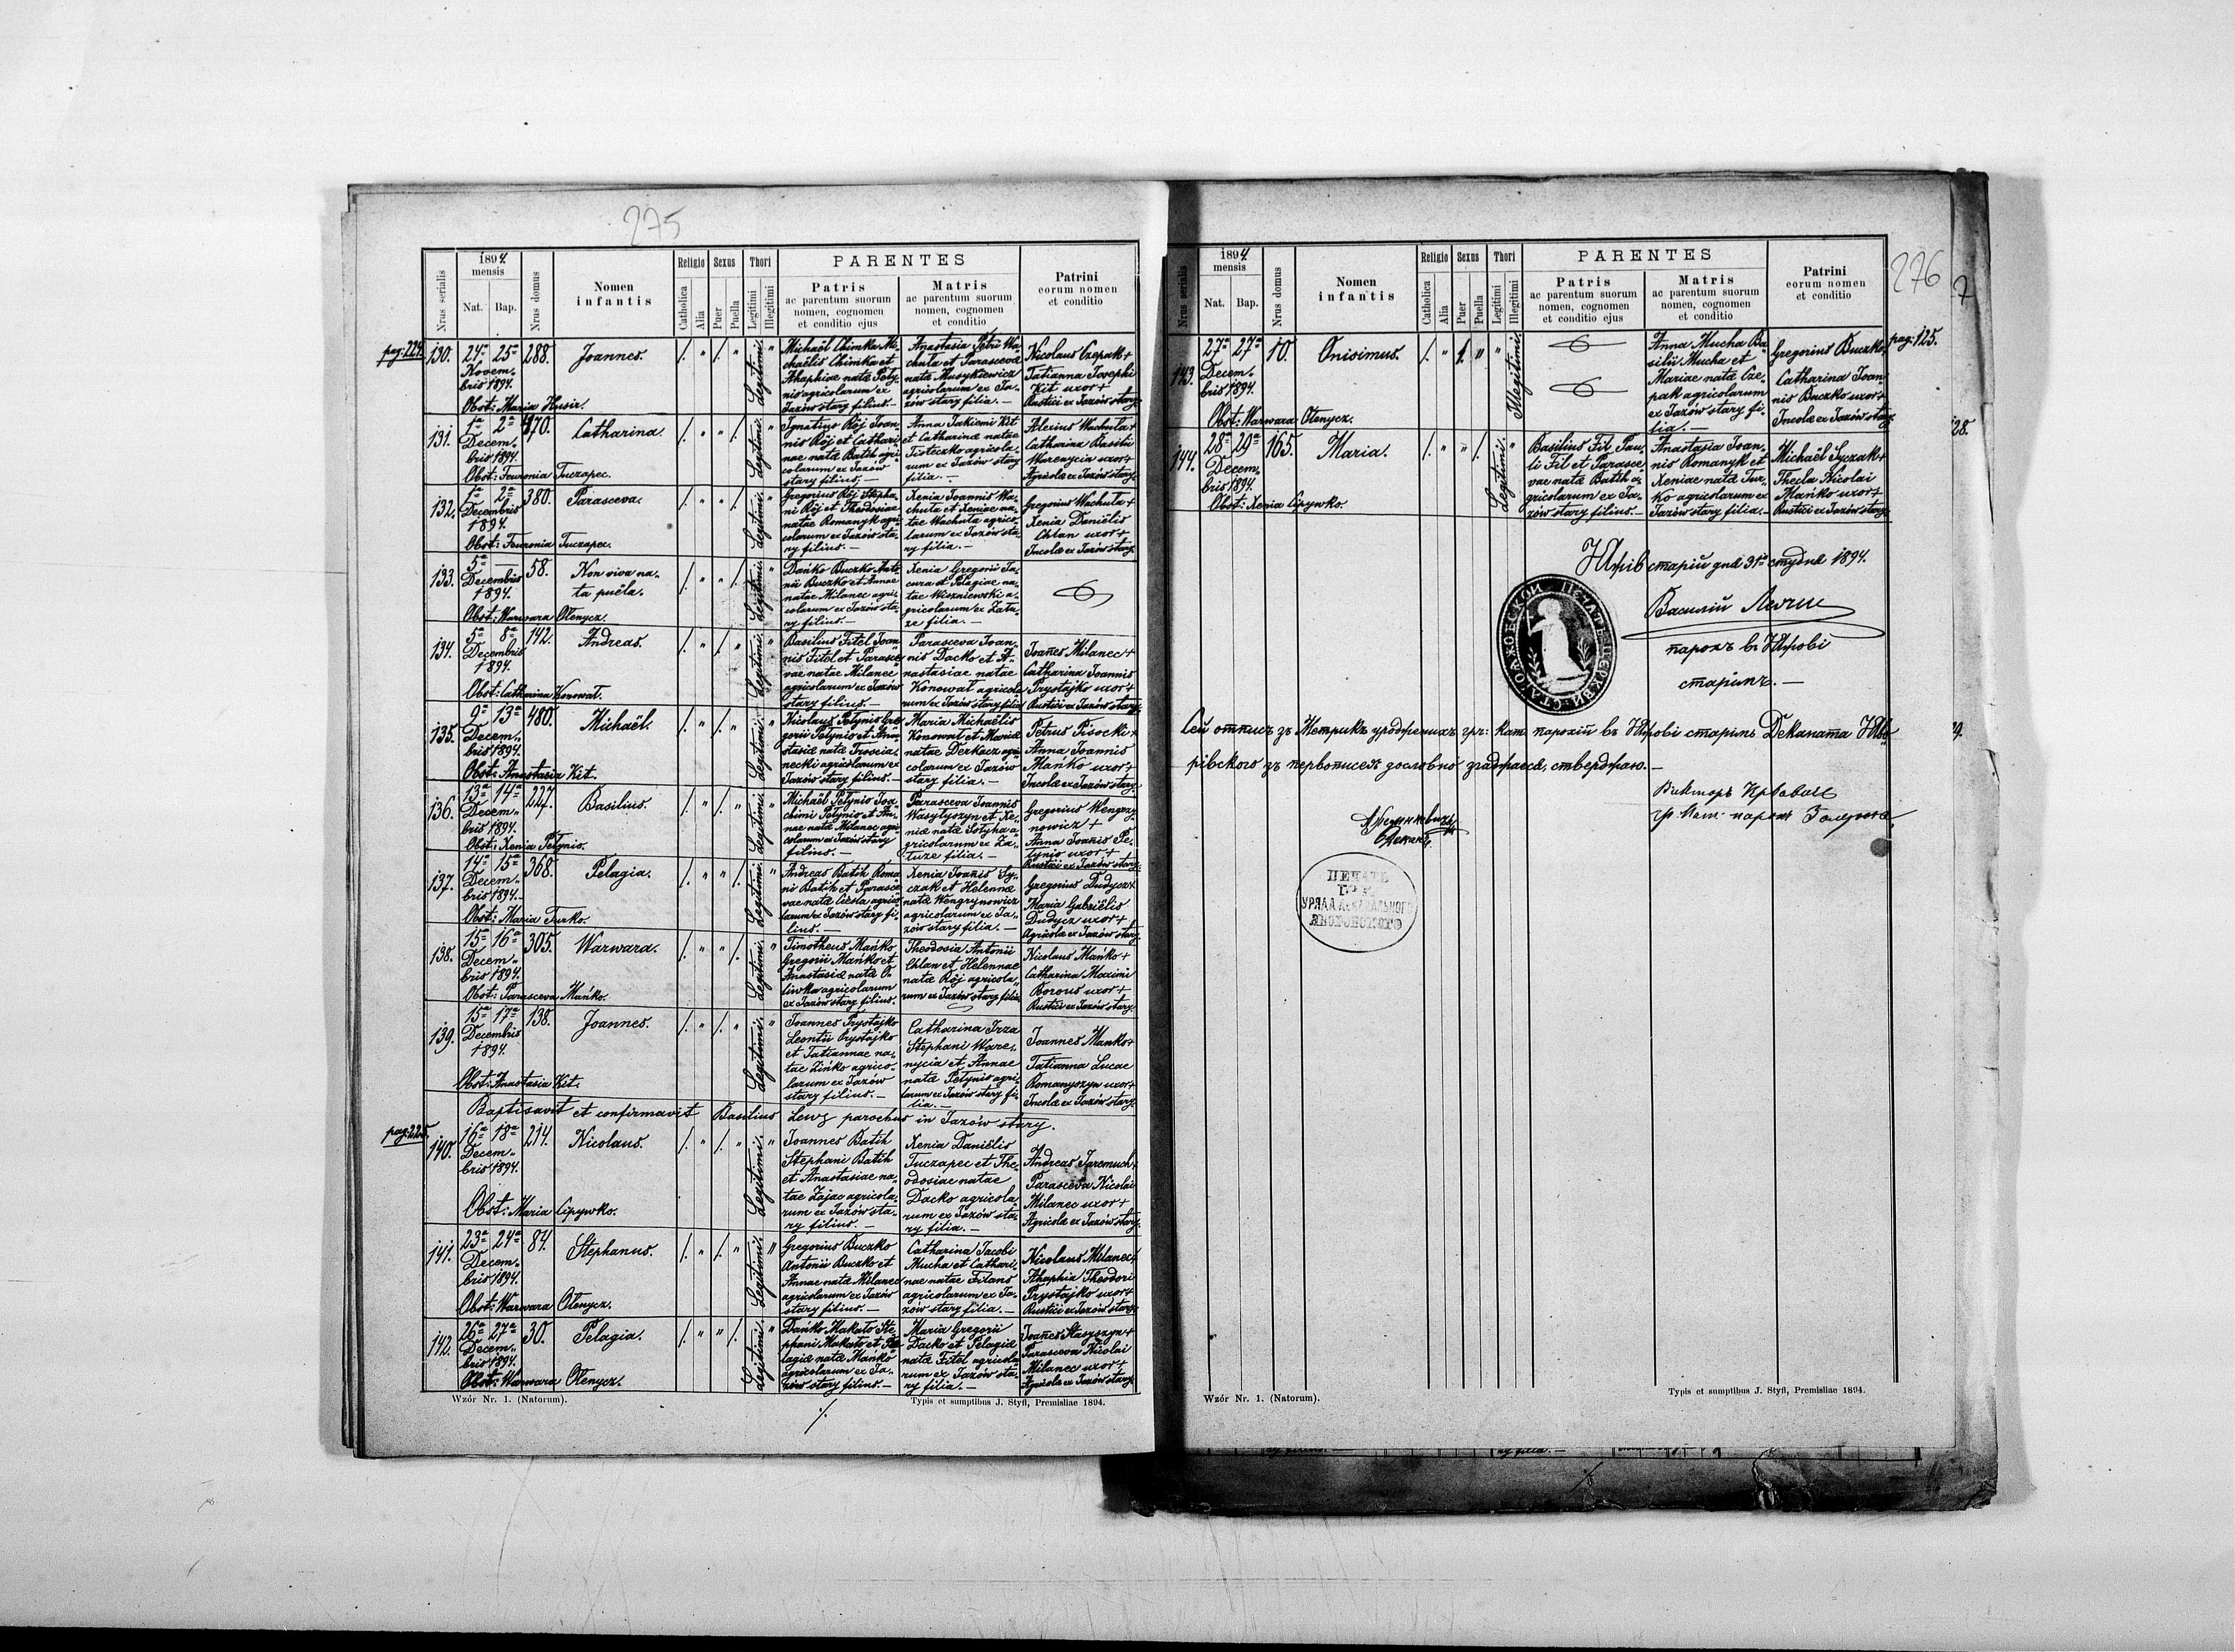 275
Nrus serialis
1894
mensis
Nat.
Bap.
Nrus domus
Nomen
infantis
Religio
Catholica
Alia
Sexus
Puer
Puella
Thori
Legitimi
Illegitimi
PARENTES
Patris
ac parentum suorum
nomen, cognomen
et conditio ejus
Matris
ac parentum suorum
nomen, cognomen
et conditio
Patrini
eorum nomen
et conditio
pag: 224.
130.
24ª 25ª
Novem„
bris 1894.
288.
Joannes.
Legitimi.
Michaël Chimka Mi„
chaëlis Chimka et
Ahaphiae natae Pety„
nis agricolarum ex
Jazów stary filius.—
Anastasia Petri Wa„
chuta et Parascevae
natae Musykiewicz
agricolarum ex Ja„
zów stary filia.—
Nicolaus Czepak +
Tatianna Josephi
Kit uxor +
Rustici ex Jazów stary.
Obst: Maria Husir.
131.
1ª 2ª
Decem„
bris 1894.
370.
Catharina.
Legitimi.
Ignatius Rój Joan„
nis Rój et Cathari„
nae natae Batih agri„
colarum ex Jazów
stary filius.—
Anna Jakimi Kit
et Catharinae natae
Tisteczko agricola„
rum ex Jazów stary
filia.—
Alexius Wachuta +
Catharina Basilii
Warenycia uxor +
Agricolae ex Jazów stary.
Obst: Fewronia Tuczapec.
132.
1ª 2ª
Decembris
1894.
380.
Parasceva.
Legitimi.
Gregorius Rój Stepha„
ni Rój et Theodosiae
natae Romanyk agri„
colarum ex Jazów sta„
ry filius.—
Xenia Joannis Wa„
chuta et Xeniae na„
tae Wachuta agrico„
larum ex Jazów sta„
ry filia.—
Gregorius Wachuta +
Xenia Daniëlis
Chlan uxor +
Incolae ex Jazów stary.
Obst: Fewronia Tuczapec.
133.
5ª —
Decembris
1894.
58.
Non viva na„
ta puella.
Legitimi.
Dańko Buczko Anto„
nii Buczko et Annae
natae Milanec agri„
colarum ex Jazów sta„
ry filius.—
Xenia Gregorii Ja„
cura et Pelagiae na„
tae Wiszniewski a„
gricolarum ex Zatu„
ze filia.—
Obst: Warwara Olenycz.
134.
5ª 8ª
Decembris
1894.
142.
Andreas.
Legitimi.
Basilius Fitel Joan„
nis Fitel et Parasce„
vae natae Milanec
agricolarum ex Jazów
stary filius.—
Parasceva Joan„
nis Dacko et A„
nastasiae natae
Konowat agricola„
rum ex Jazów stary filia.
Joanes Milanec +
Catharina Joannis
Prystajko uxor +
Rustici ex Jazów stary.
Obst: Catharina Konowat.
135.
9ª 13ª
Decem„
bris 1894.
480.
Michaël.
Legitimi.
Nicolaus Petynis Gre„
gorii Petynis et Ana„
stasiae natae Troscia„
necki agricolarum ex
Jazów stary filius.—
Maria Michaëlis
Konowat et Mariae
natae Derkacz agri„
colarum ex Jazów
stary filia.—
Petrus Pisocki +
Anna Joannis
Mańko uxor +
Incolae ex Jazów stary.
Obst: Anastasia Kit.
136.
13ª 14ª
Decem„
bris 1894.
227.
Basilius.
Legitimi.
Michaël Petynis Joa„
chimi Petynis et An„
nae natae Milanec agri„
colarum ex Jazów stary
filius.—
Parasceva Joannis
Wasylyszyn et Xe„
niae natae Sotyha a„
gricolarum ex Za„
tuze filia.—
Gregorius Wengrzy„
nowicz +
Anna Joanis Pe„
tynis uxor +
Rustici ex Jazów stary.
Obst: Xenia Petynis.
137.
14ª 15ª
Decem„
bris 1894.
368.
Pelagia.
Legitimi.
Andreas Batih Roma„
ni Batih et Parasce„
vae natae Ciesla agrico„
larum ex Jazów stary fi„
lius.—
Xenia Joanis Sy„
czak et Helennae
natae Wengrynowicz
agricolarum ex Ja„
zów stary filia.—
Gregorius Dudycz +
Maria Gabriëlis
Dudycz uxor +
Agricolae ex Jazów stary.
Obst: Maria Turko.
138.
15ª 16ª
Decem„
bris 1894.
305.
Warwara.
Legitimi.
Timotheus Mańko
Gregorii Mańko et
Anastasiae natae O„
liwka agricolarum
ex Jazów stary filius.
Theodosia Antonii
Chlan et Helennae
natae Rój agricola„
rum ex Jazów stary filia.
Nicolaus Mańko +
Catharina Maximi
Borous uxor +
Rustici ex Jazów stary.
Obst: Parasceva Mańko.
139.
15ª 17ª
Decembris
1894.
138.
Joannes.
Legitimi.
Joannes Prystajko
Leontii Prystajko
et Tatiannae na„
tae Zińko agrico„
larum ex Jazów
stary filius.—
Catharina Irza
Stephani Ware„
nycia et Annae
natae Petynis agri„
larum ex Jazów stary fi„
lia.—
Joannes Mańko +
Tatianna Lucae
Romanyszyn uxor +
Incolae ex Jazów stary.
Obst: Anastasia Kit.
Baptisavit et confirmavit Basilius Lewz parochus in Jazów stary.
pag: 225.
140.
16ª 18ª
Decem„
bris 1894.
214.
Nicolaus.
Legitimi.
Joannes Batih
Stephani Batih
et Anastasiae na„
tae Zając agricola„
rum ex Jazów sta„
ry filius.—
Xenia Daniëlis
Tuczapec et The„
odosiae natae
Dacko agricola„
rum ex Jazów sta„
ry filia.—
Andreas Jaremuch +
Parasceva Nicolai
Milanec uxor +
Agricolae ex Jazów stary.
Obst: Maria Cipywko.
141.
23ª 24ª
Decem„
bris 1894.
87.
Stephanus.
Legitimi.
Gregorius Buczko
Antonii Buczko et
Annae natae Milanec
agricolarum ex Jazów
stary filius.—
Catharina Jacobi
Mucha et Cathari„
nae natae Filans
agricolarum ex Ja„
zów stary filia.—
Nicolaus Milanec +
Ahaphia Theodori
Prystajko uxor +
Rustici ex Jazów stary.
Obst: Warwara Olenycz.
142.
26ª 27ª
Decem„
bris 1894.
30.
Pelagia.
Legitimi.
Dańko Hakało Ste„
phani Hakało et Pe„
lagiae natae Mańko
agricolarum ex Ja„
zów stary filius.—
Maria Gregorii
Dacko et Pelagiae
natae Fitel agricola„
rum ex Jazów sta„
ry filia.—
Joanes Stasyszyn +
Parasceva Nicolai
Milanec uxor +
Agricolae ex Jazów stary.
Obst: Warwara Olenycz.
Wzór Nr. 1. (Natorum).
Typis et sumptibus J. Styfi, Premisliae 1894.
276
7
Nrus serialis
1894
mensis
Nat.
Bap.
Nrus domus
Nomen
infantis
Religio
Catholica
Alia
Sexus
Puer
Puella
Thori
Legitimi
Illegitimi
PARENTES
Patris
ac parentum suorum
nomen, cognomen
et conditio ejus
Matris
ac parentum suorum
nomen, cognomen
et conditio
Patrini
eorum nomen
et conditio
pag: 125.
143.
27ª 27ª
Decem„
bris 1894.
10.
Onisimus.
Illegitimi.
Anna Mucha Ba„
silii Mucha et
Mariae natae Cze„
pak agricolarum
ex Jazów stary fi„
lia.—
Gregorius Buczko +
Catharina Joan„
nis Buczko uxor +
Incolae ex Jazów stary.
Obst: Warwara Olenycz.
28.
144.
28ª 29ª
Decem„
bris 1894.
165.
Maria.
Legitimi.
Basilius Fil Pau„
li Fil et Parasce„
vae natae Batih a„
gricolarum ex Ja„
zów stary filius.—
Anastasia Joan„
nis Romanyk et
Xeniae natae Tur„
ko agricolarum ex
Jazów stary filia.—
Michaël Syczak +
Thecla Nicolai
Mańko uxor +
Rustici ex Jazów stary.
Obst: Xenia Cipywko.
старій дня 31го студня 1894.
Василій
парохъ въ
старімъ.—
Сей отписъ зъ Метрикъ урожденихъ гр: кат парохій въ старімъ Деканата
рівского зъ первописемъ дословно згаджаесь, стверджаю.—
Викторъ
гр. кат. парох
Деканъ
ПЕЧАТЬ
УРЯДА ДЕКАНАЛЬНОГО
ЯВОРОВСКОГО
Wzór Nr. 1. (Natorum).
Typis et sumptibus J. Styfi, Premisliae 1894.